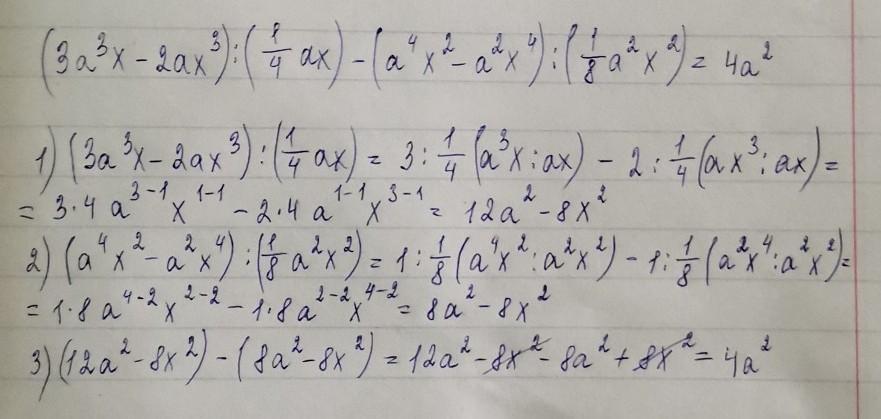 (3a³x − 2ax³) : (1/4 ax) − (a⁴x² − a²x⁴) : (1/8 a²x²) = 4a²
1) (3a³x − 2ax³) : (1/4 ax) = 3 : 1/4 (a³x : ax) − 2 : 1/4 (ax³ : ax) =
= 3·4 a³⁻¹ x¹⁻¹ − 2·4 a¹⁻¹ x³⁻¹ = 12a² − 8x²
2) (a⁴x² − a²x⁴) : (1/8 a²x²) = 1 : 1/8 (a⁴x² : a²x²) − 1 : 1/8 (a²x⁴ : a²x²) =
= 1·8 a⁴⁻² x²⁻² − 1·8 a²⁻² x⁴⁻² = 8a² − 8x²
3) (12a² − 8x²) − (8a² − 8x²) = 12a² − 8x² − 8a² + 8x² = 4a²